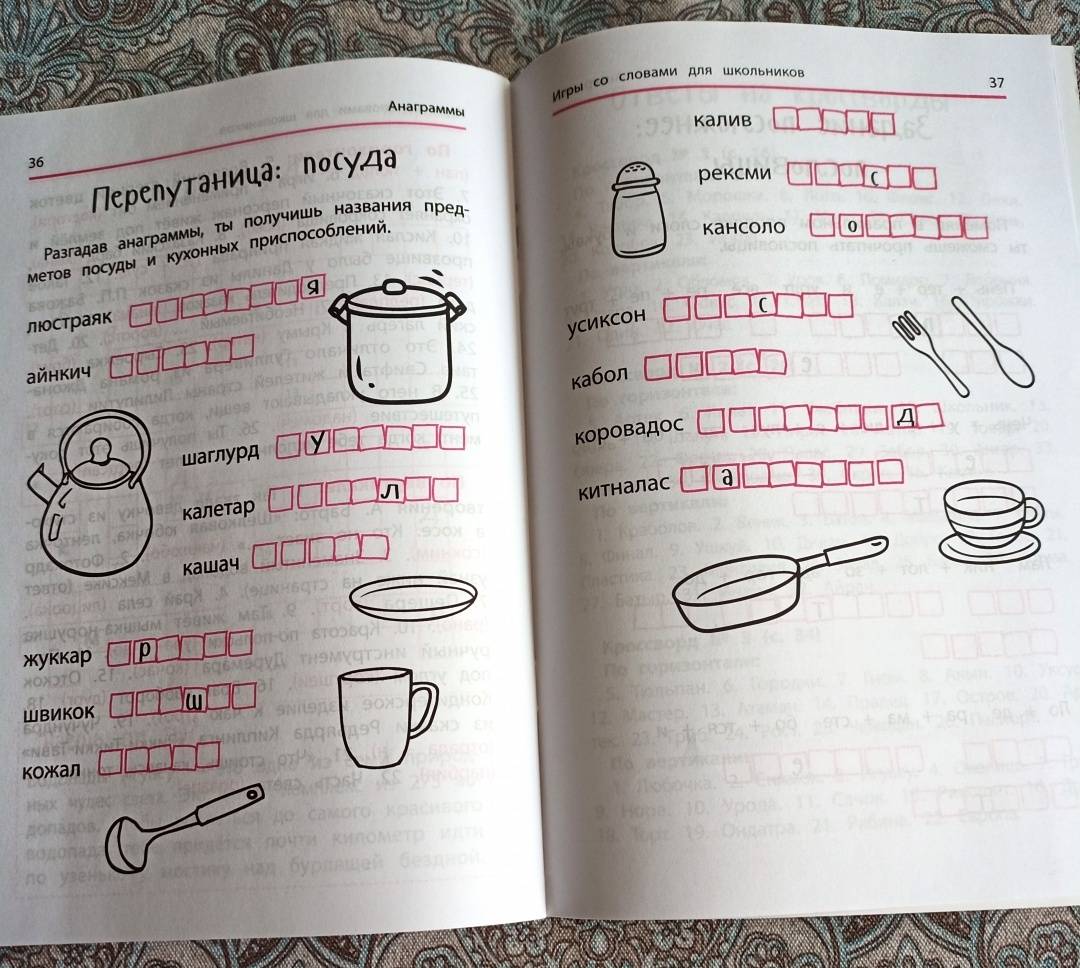 36
Анаграммы
Перепутаница: посуда
Разгадав анаграммы, ты получишь названия пред-
метов посуды и кухонных приспособлений.
люстраяк
я
айнкич
шаглурд
у
калетар
л
кашач
жуккар
р
швикок
ш
кожал
Игры со словами для школьников
37
калив
рексми
с
кансоло
о
усиксон
с
кабол
коровадос
д
китналас
а